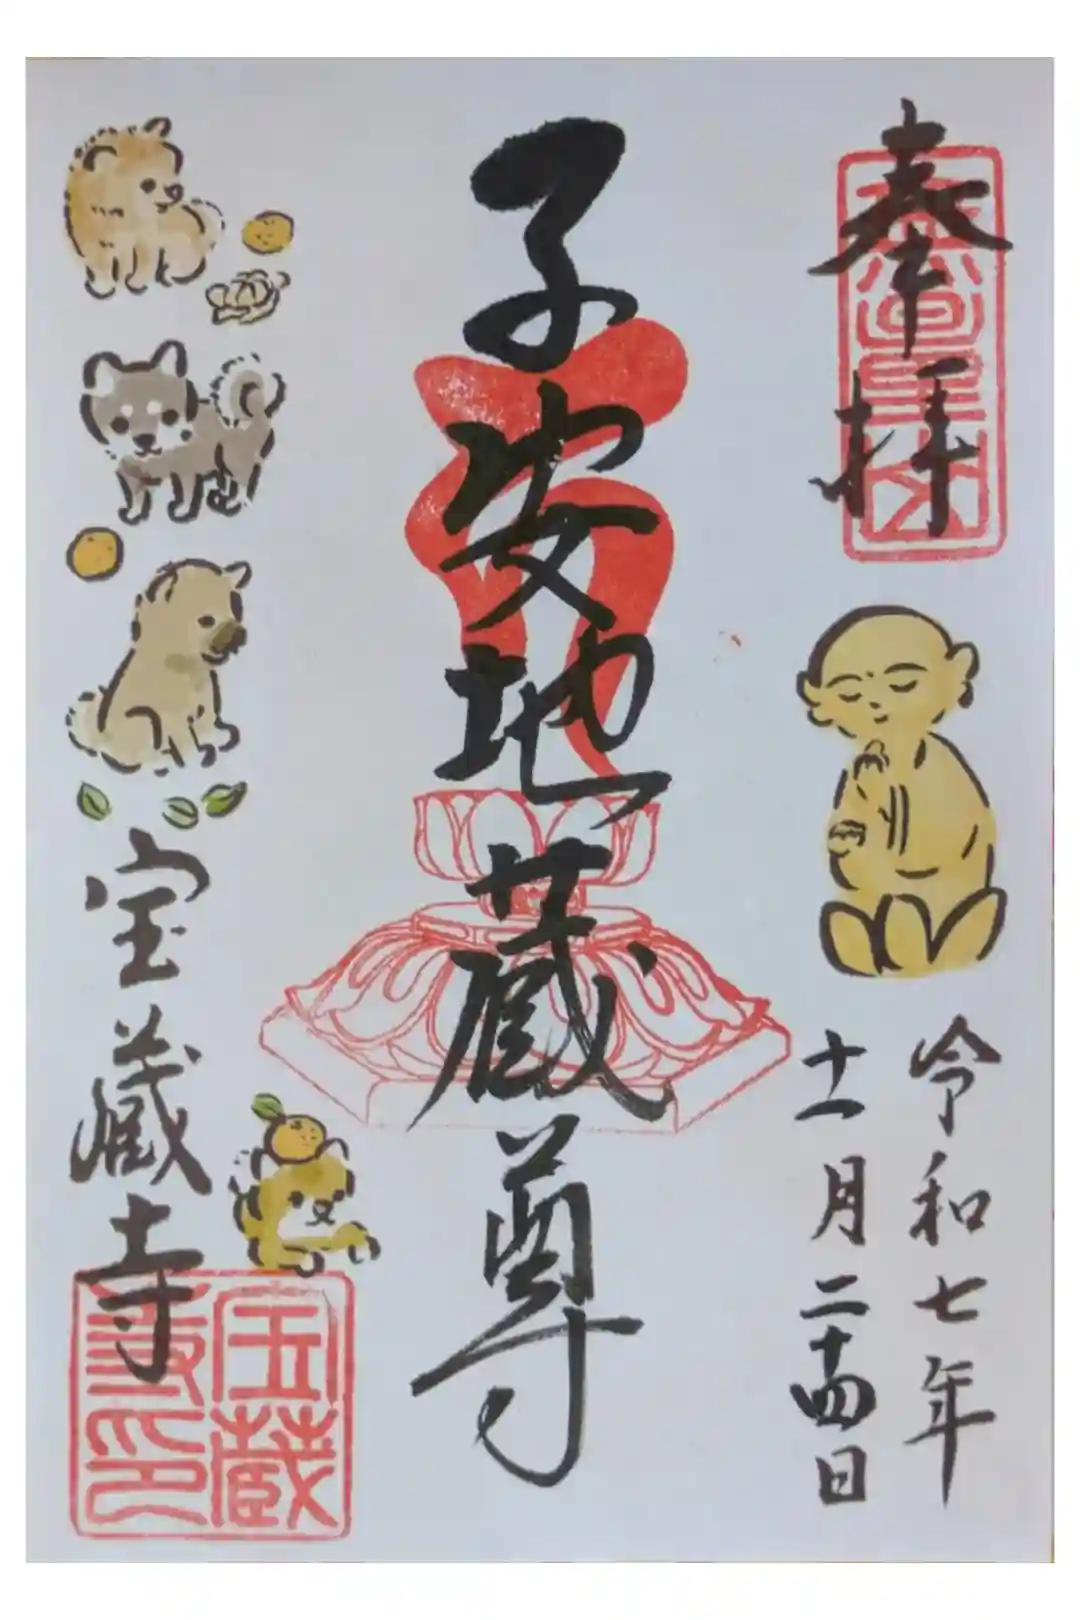 奉拝
令和七年
十一月二十四日
子安地蔵尊
宝蔵寺
宝蔵
寺印